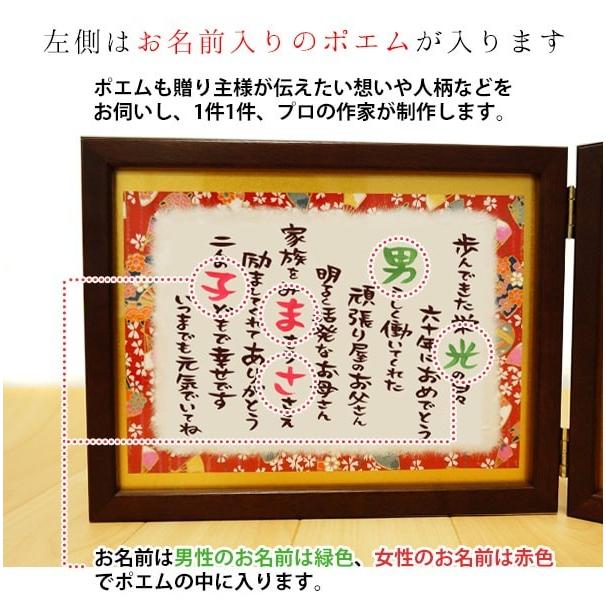 左側はお名前入りのポエムが入ります
ポエムも贈り主様が伝えたい想いや人柄などを
お伺いし、1件1件、プロの作家が制作します。
歩んできた栄光の日々
六十年におめでとう
男らしく働いてくれた
頑張り屋のお父さん
明るく活発なお母さん
家族をみまもりささえ
励ましてくれてありがとう
二人の子どもで幸せです
いつまでも元気でいてね
お名前は男性のお名前は緑色、女性のお名前は赤色
でポエムの中に入ります。